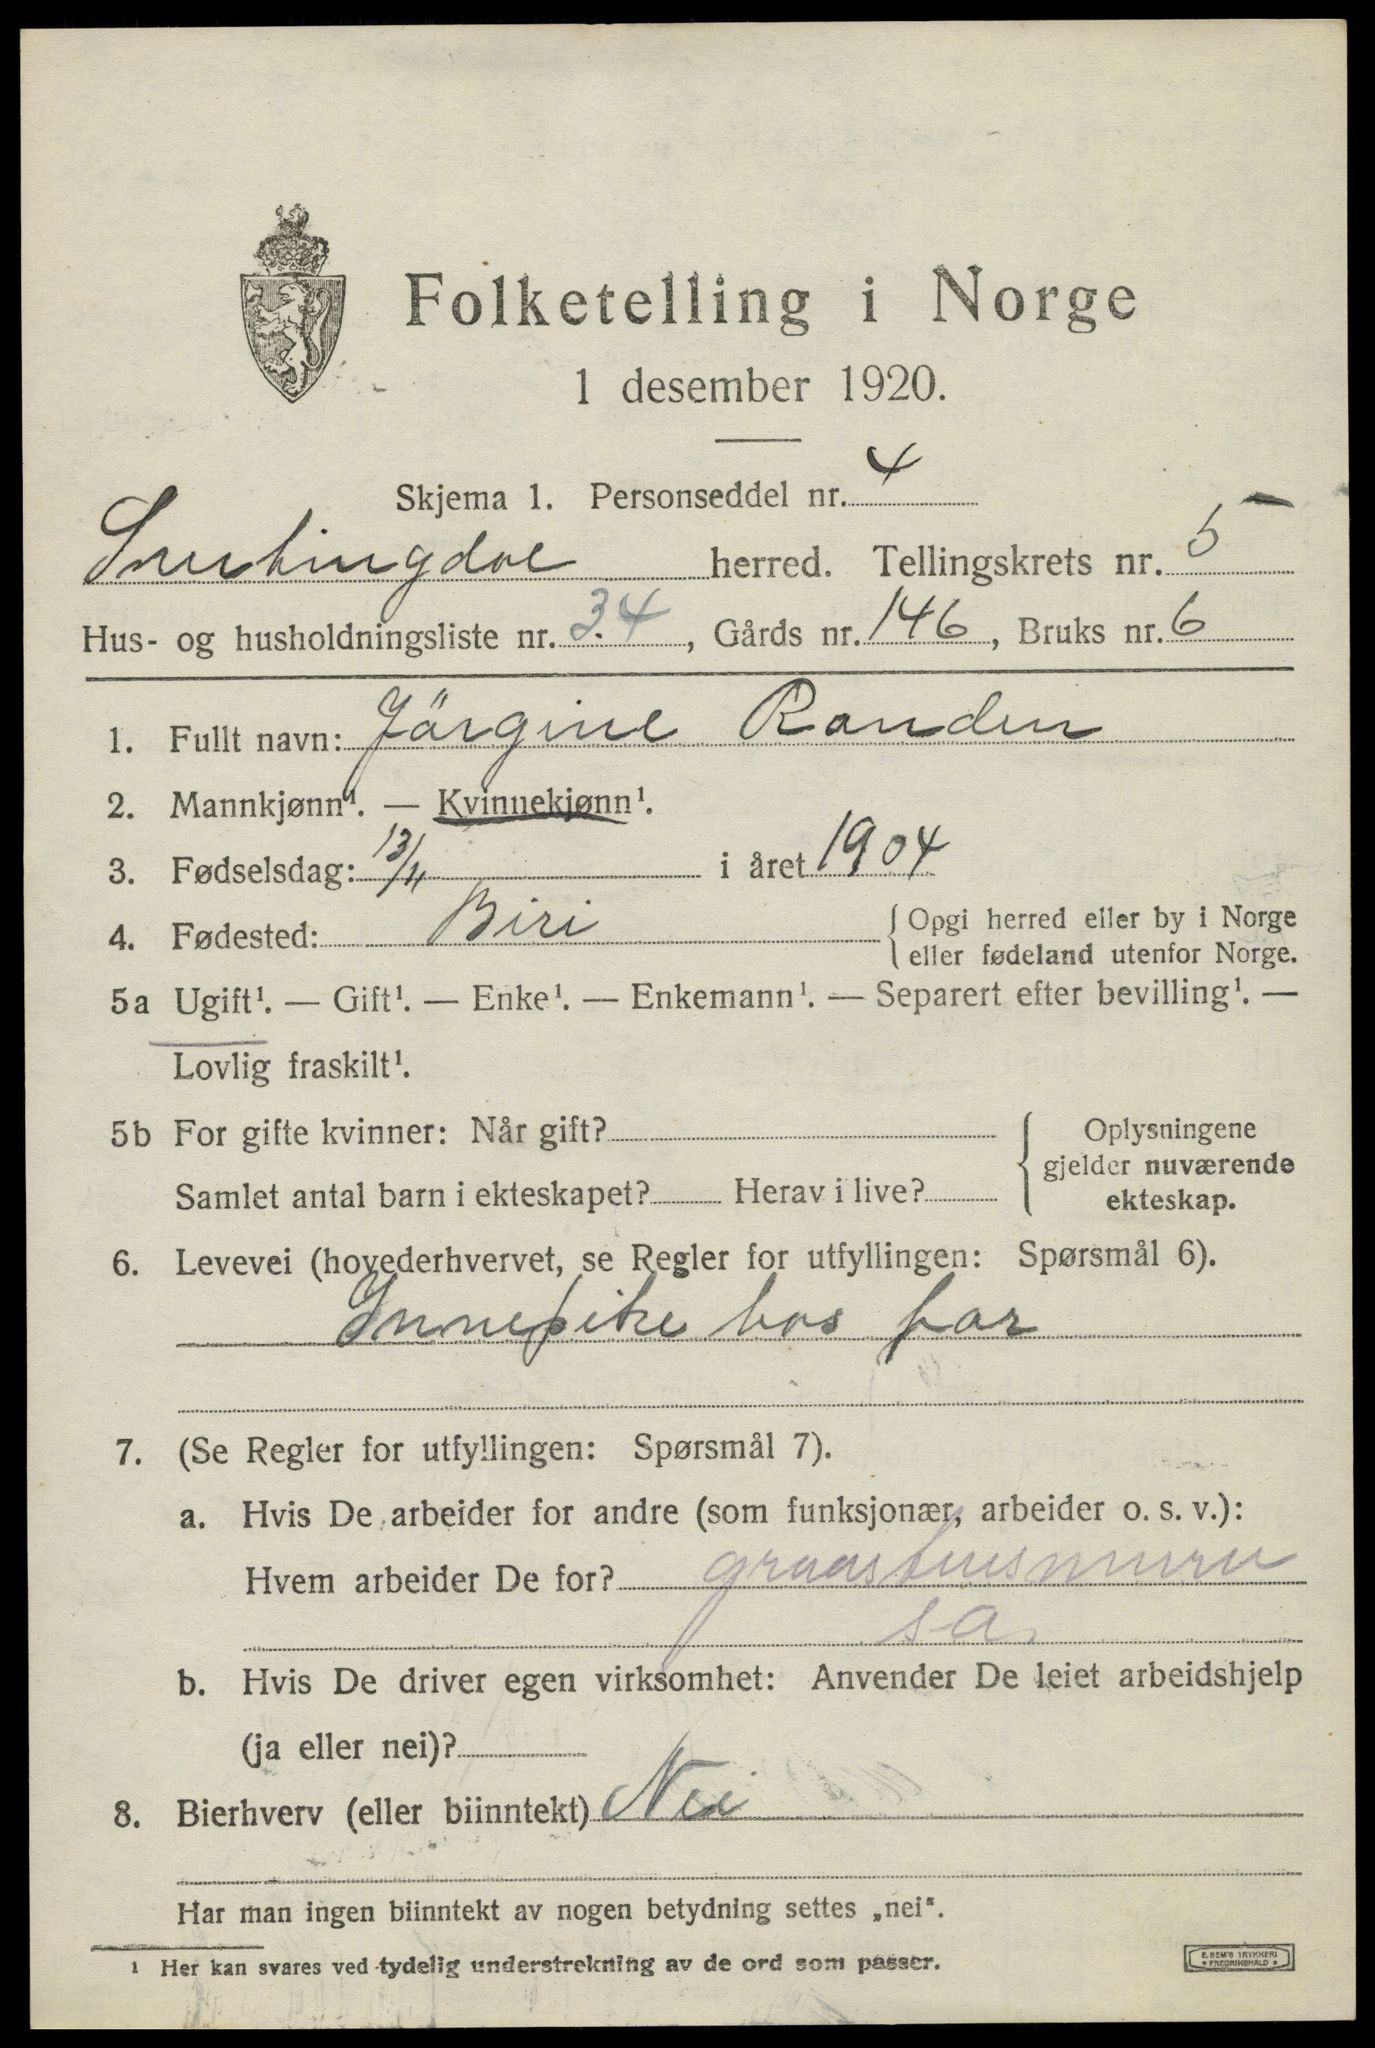 Folketelling i Norge
1 desember 1920.
Skjema 1. Personseddel nr. 4
Snertingdal herred. Tellingskrets nr. 5
Hus- og husholdningsliste nr. 34, Gårds nr. 146, Bruks nr. 6
1. Fullt navn: Jörgine Randen
2. Mannkjønn¹. — Kvinnekjønn¹.
3. Fødselsdag: 13/11 i året 1904
4. Fødested: Biri { Opgi herred eller by i Norge
eller fødeland utenfor Norge.
5a Ugift¹. — Gift¹. — Enke¹. — Enkemann¹. — Separert efter bevilling¹. —
Lovlig fraskilt¹.
5b For gifte kvinner: Når gift? { Oplysningene
gjelder nuværende
Samlet antal barn i ekteskapet? Herav i live? ekteskap.
6. Levevei (hovederhvervet, se Regler for utfyllingen: Spørsmål 6).
Innepike hos far
7. (Se Regler for utfyllingen: Spørsmål 7).
a. Hvis De arbeider for andre (som funksjonær, arbeider o. s. v.):
Hvem arbeider De for?
sa.
b. Hvis De driver egen virksomhet: Anvender De leiet arbeidshjelp
(ja eller nei)?
8. Bierhverv (eller biinntekt) Nei
Har man ingen biinntekt av nogen betydning settes „nei“.
1 Her kan svares ved tydelig understrekning av de ord som passer.
E. SEM'S TRYKKERI
FREDRIKSHALD